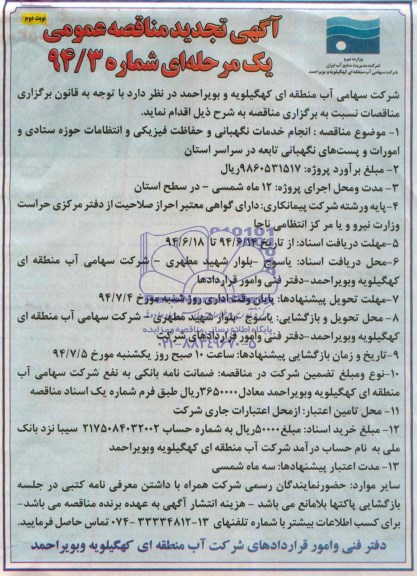 نوبت دوم
آگهی تجدید مناقصه عمومی
یک مرحله‌ای شماره ۹۴/۳
وزارت نیرو
شرکت مدیریت منابع آب ایران
شرکت سهامی آب منطقه ای کهگیلویه و بویراحمد
شرکت سهامی آب منطقه ای کهگیلویه و بویراحمد در نظر دارد با توجه به قانون برگزاری
مناقصات نسبت به برگزاری مناقصه به شرح ذیل اقدام نماید.
۱- موضوع مناقصه : انجام خدمات نگهبانی و حفاظت فیزیکی و انتظامات حوزه ستادی و
امورات و پست‌های نگهبانی تابعه در سراسر استان
۲- مبلغ برآورد پروژه: ۹۸۶۰۵۳۱۵۱۷ریال
۳- مدت ومحل اجرای پروژه: ۱۲ ماه شمسی - در سطح استان
۴-پایه ورشته شرکت پیمانکاری: دارای گواهی معتبر احراز صلاحیت از دفتر مرکزی حراست
وزارت نیرو و یا مرکز انتظامی ناجا
۵-مهلت دریافت اسناد: از تاریخ ۹۴/۶/۱۴ تا ۹۴/۶/۱۸
۶-محل دریافت اسناد: یاسوج -بلوار شهید مطهری - شرکت سهامی آب منطقه ای
کهگیلویه وبویراحمد-دفتر فنی وامور قراردادها
۷-مهلت تحویل پیشنهادها: پایان وقت اداری روز شنبه مورخ ۹۴/۷/۴
۸- محل تحویل و بازگشایی: یاسوج -بلوار شهید مطهری - شرکت سهامی آب منطقه ای
کهگیلویه وبویراحمد-دفتر فنی وامور قراردادهای شرکت
۹-تاریخ و زمان بازگشایی پیشنهادها: ساعت ۱۰ صبح روز یکشنبه مورخ ۹۴/۷/۵
۱۰-نوع ومبلغ تضمین شرکت در مناقصه: ضمانت نامه بانکی به نفع شرکت سهامی آب
منطقه ای کهگیلویه وبویراحمد معادل ۳۶۵۰۰۰۰۰۰ریال طبق فرم شماره یک اسناد مناقصه
۱۱- محل تامین اعتبار: ازمحل اعتبارات جاری شرکت
۱۲- مبلغ خرید اسناد: مبلغ ۵۰۰۰۰۰ریال به شماره حساب ۲۱۷۵۰۸۴۰۳۲۰۰۲ سیبا نزد بانک
ملی به نام حساب درآمد شرکت آب منطقه ای کهگیلویه وبویراحمد
۱۳- مدت اعتبار پیشنهادها: سه ماه شمسی
سایر موارد: حضورنمایندگان رسمی شرکت همراه با داشتن معرفی نامه کتبی در جلسه
بازگشایی پاکتها بلامانع می باشد - هزینه انتشار آگهی به عهده برنده مناقصه می باشد-
برای کسب اطلاعات بیشتر با شماره تلفنهای ۱۳-۳۳۳۳۴۸۱۲-۰۷۴ تماس حاصل فرمایید.
دفتر فنی وامور قراردادهای شرکت آب منطقه ای کهگیلویه وبویراحمد